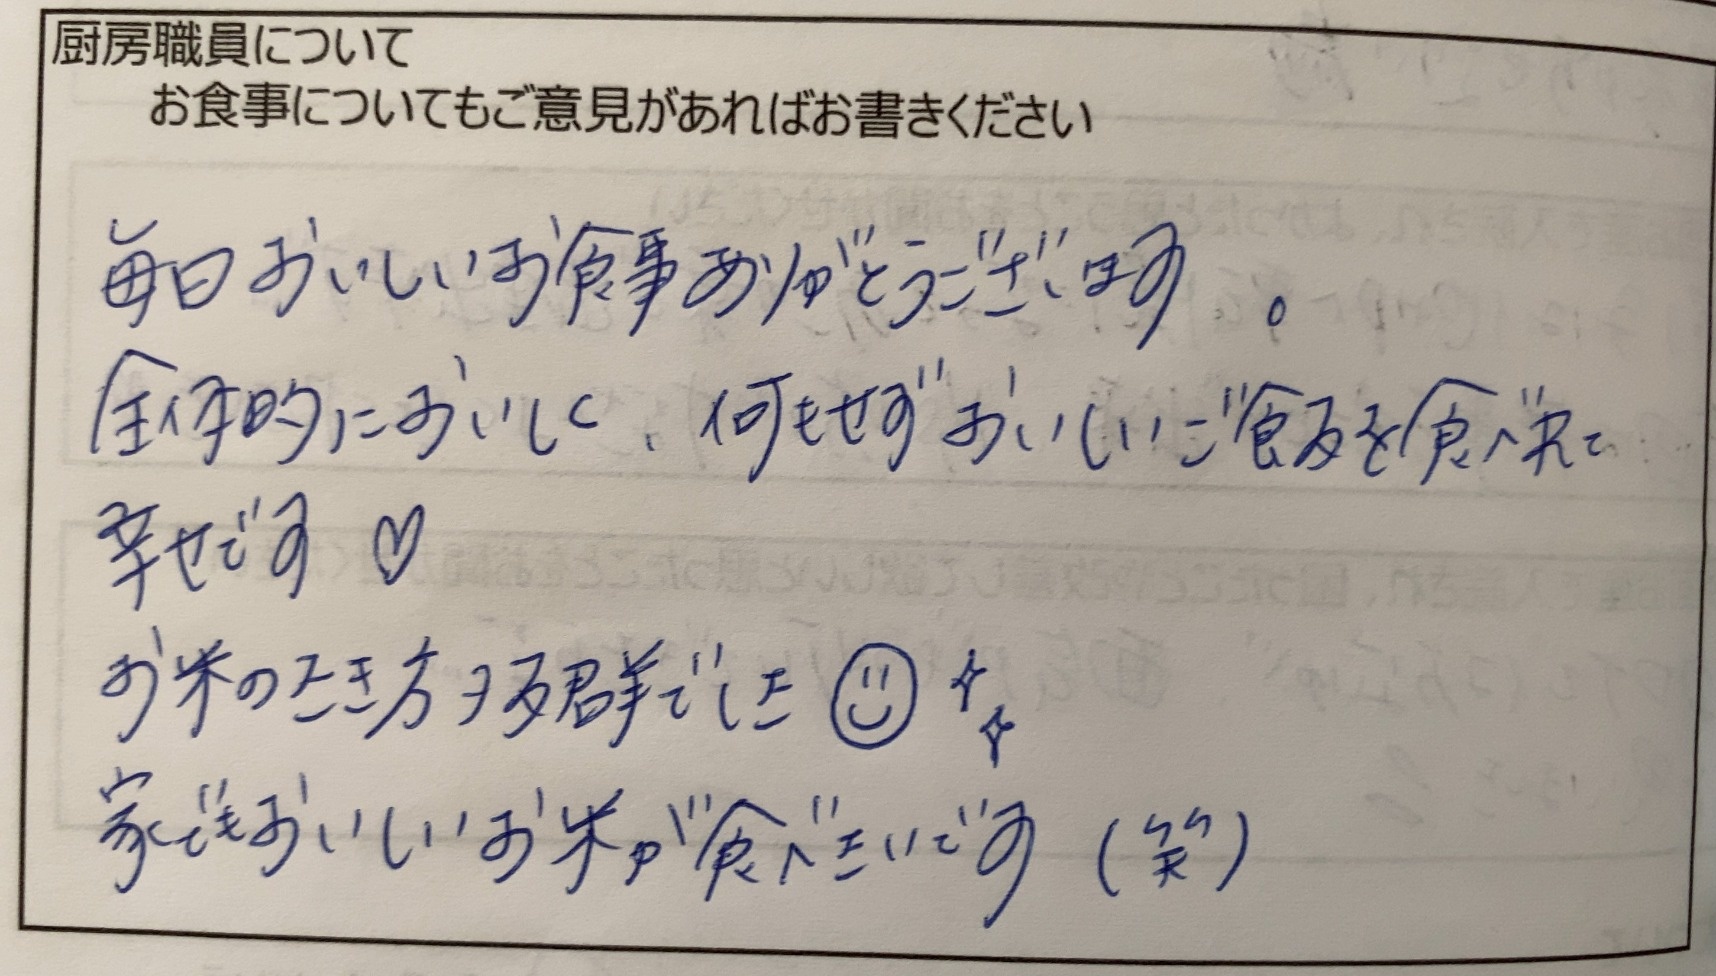 厨房職員について
お食事についてもご意見があればお書きください
毎日おいしいお食事ありがとうございます。
全体的においしく、何もせずおいしいご飯を食べれて
幸せです♡
お米のたき方も抜群でした☺✨
家でもおいしいお米が食べたいです（笑）